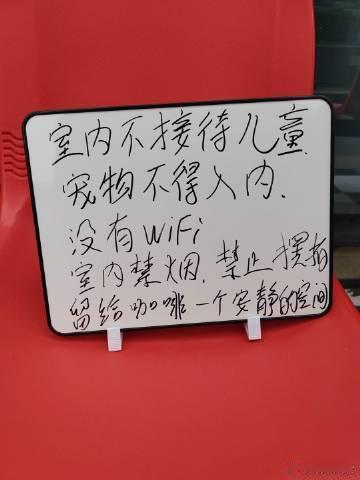 室内不接待儿童.
宠物不得入内.
没有WiFi
室内禁烟.禁止摆拍
留给咖啡一个安静的空间